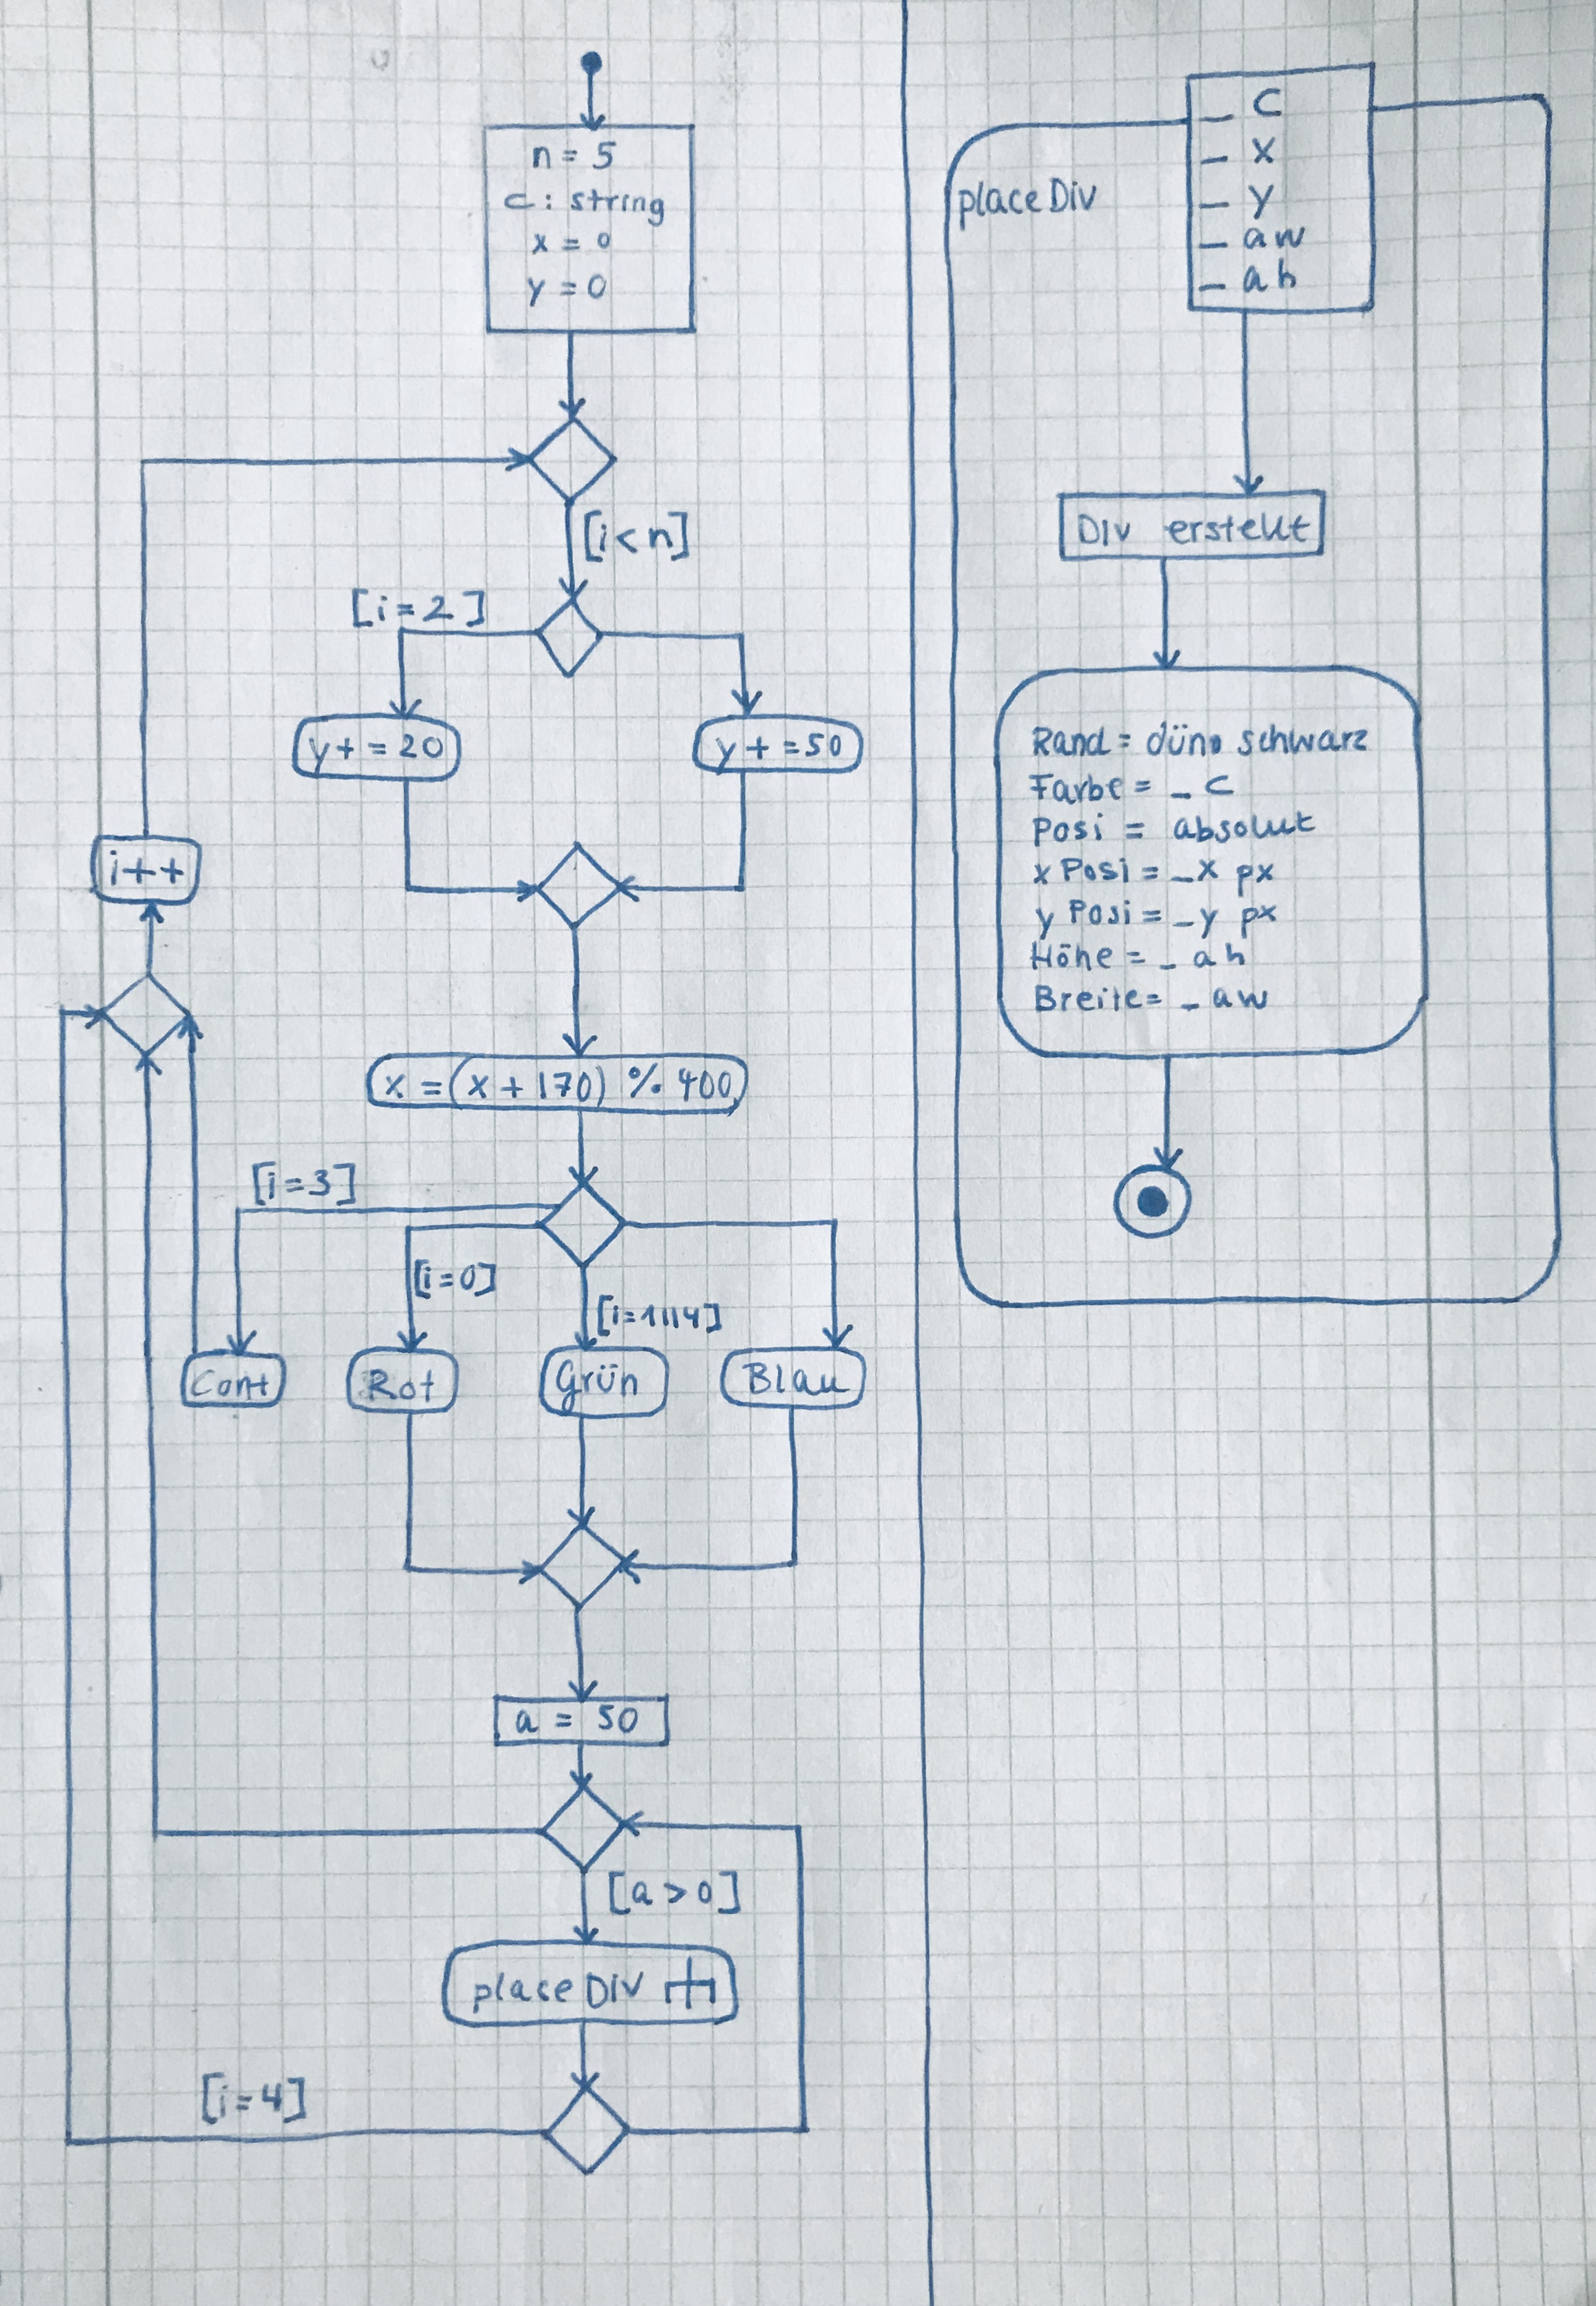 n = 5
c : string
x = 0
y = 0
[i < n]
[i = 2]
y + = 20
y + = 50
i++
x = (x + 170) % 400
[i = 3]
[i = 0]
[i = 1 || 4]
Cont
Rot
Grün
Blau
a = 50
[a > 0]
place DIV
[i = 4]
place Div
_ c
_ x
_ y
_ aw
_ ah
DIV erstellt
Rand = dünn schwarz
Farbe = _ c
Posi = absolut
x Posi = _x px
y Posi = _y px
Höhe = _ ah
Breite = _ aw